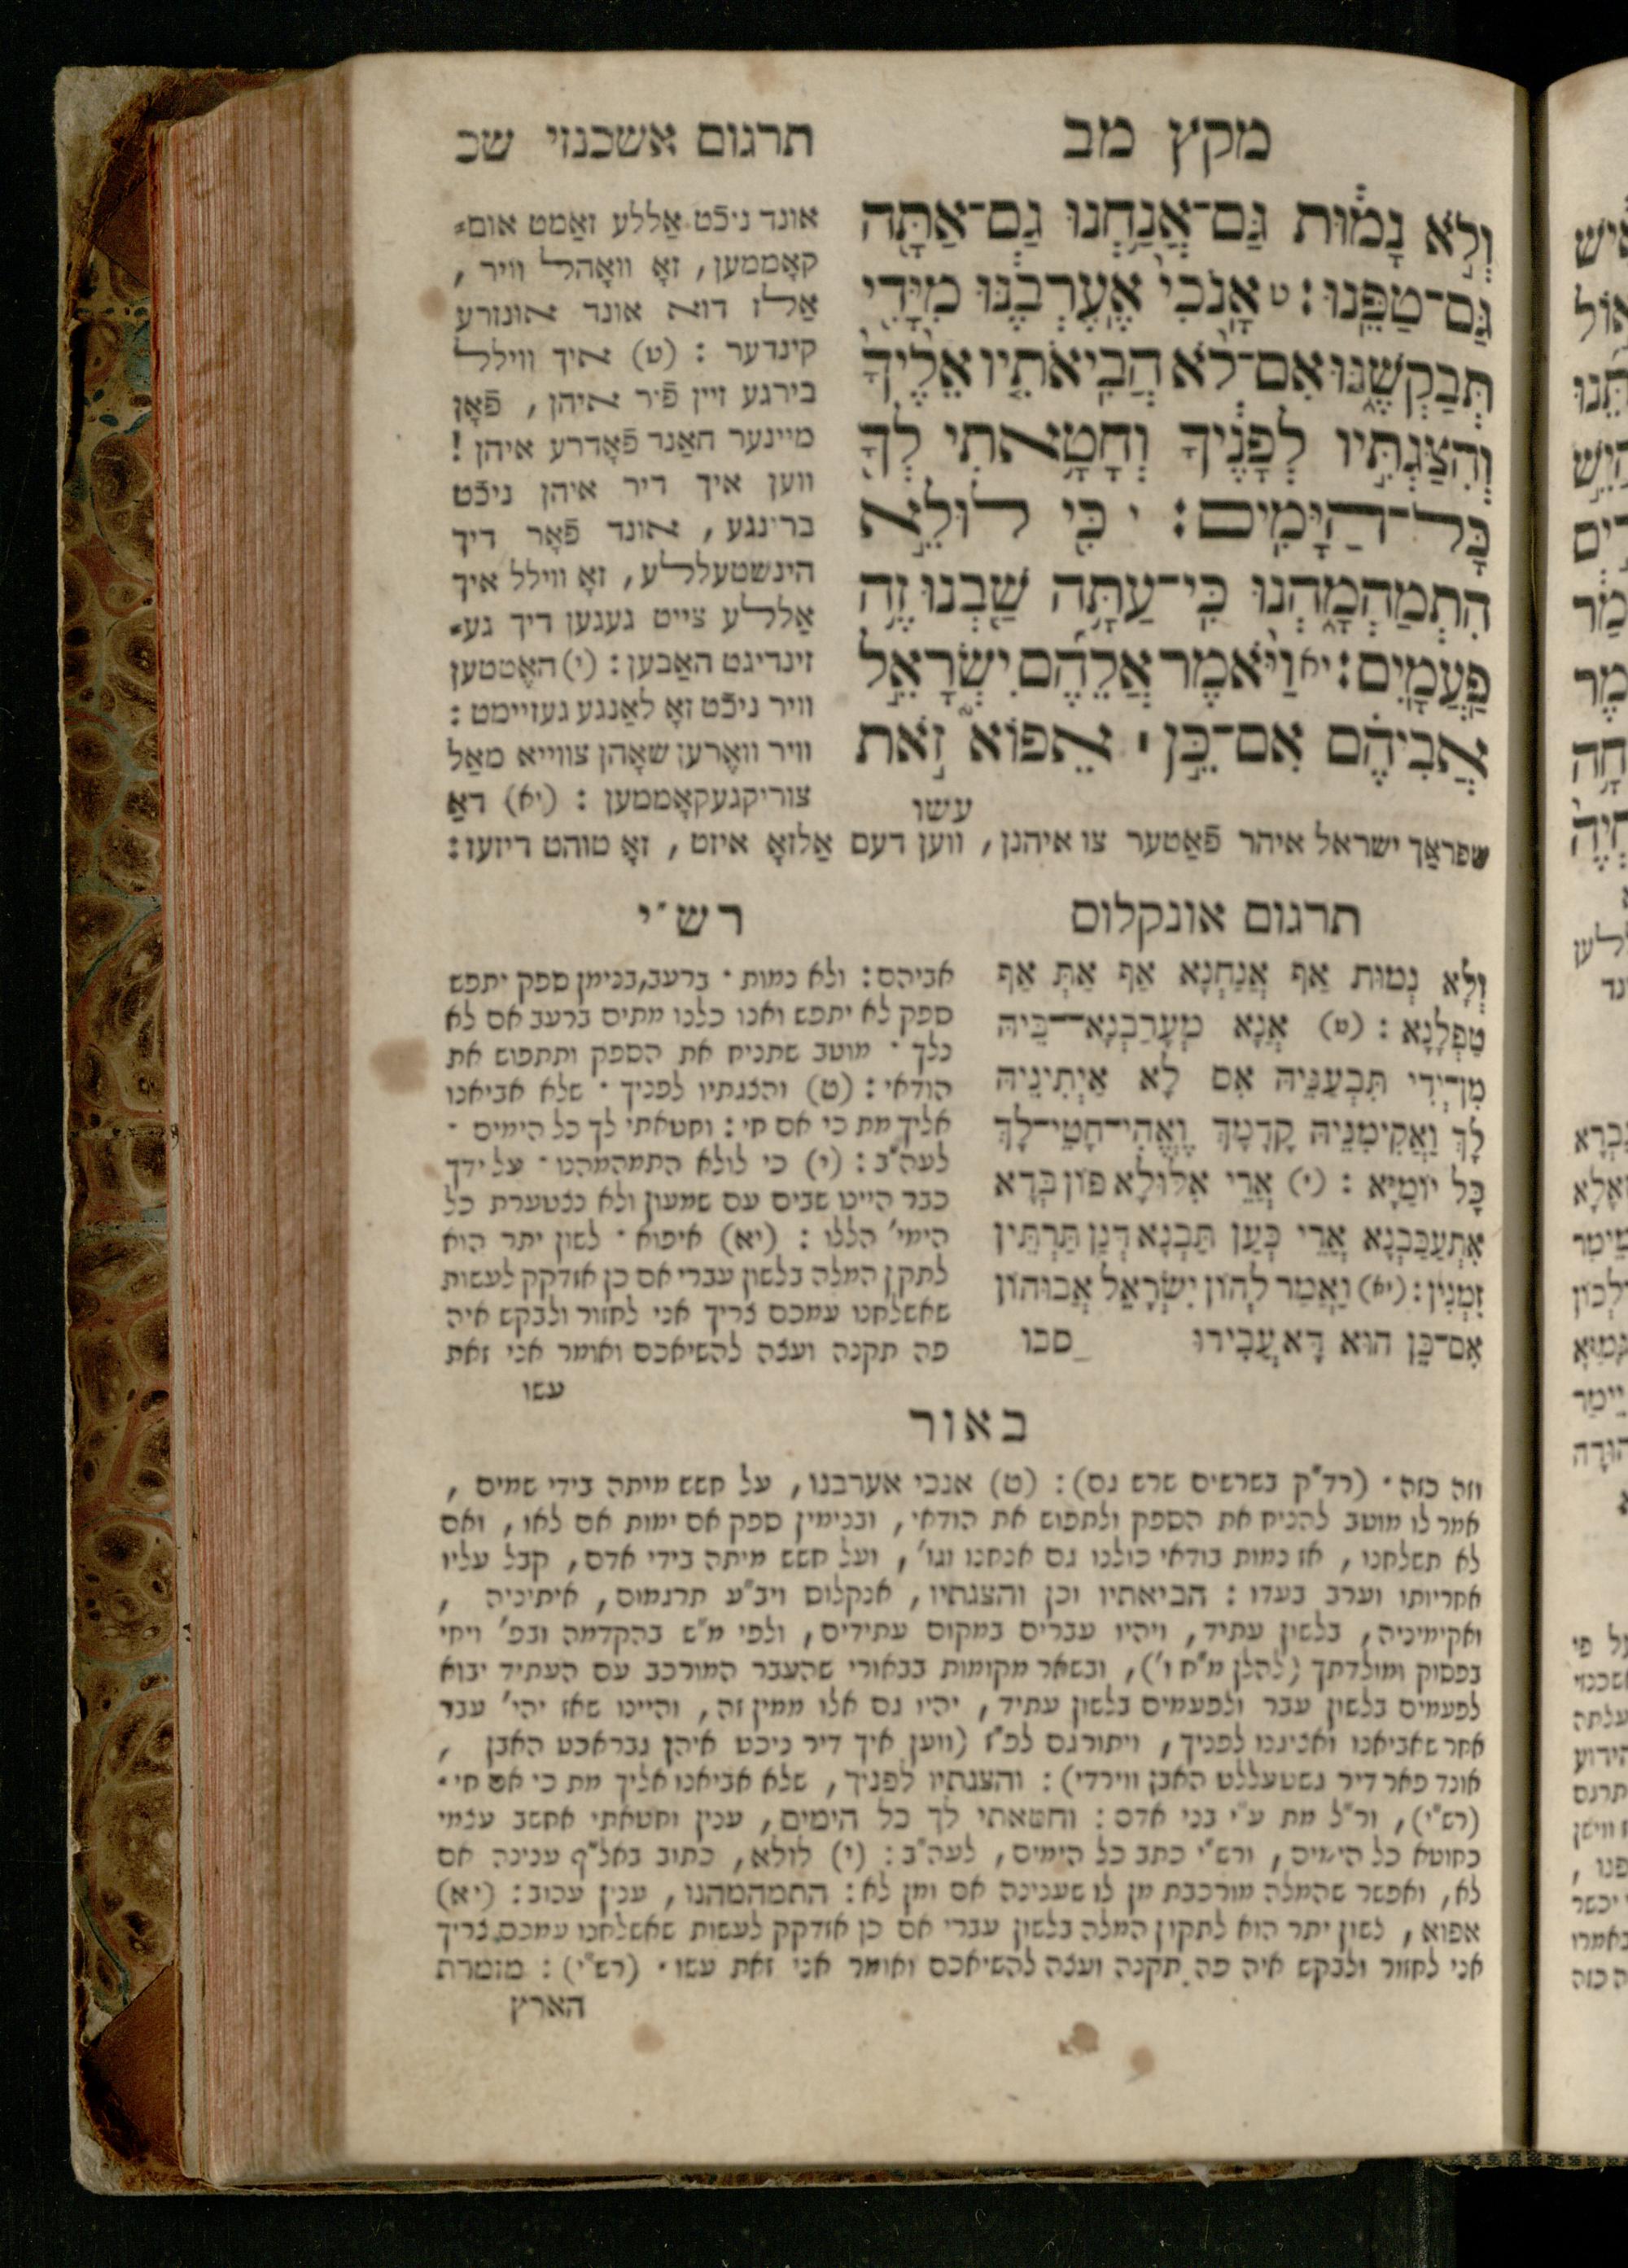 מקץ מב
תרגום אשכנזי שכ
וְלֹ֣א נָמ֔וּת גַּם־אֲנַ֥חְנוּ גַם־אַתָּ֖ה
גַּם־טַפֵּֽנוּ: ט אָֽנֹכִי֙ אֶֽעֶרְבֶ֔נּוּ מִיָּדִ֖י
תְּבַקְשֶׁ֑נּוּ אִם־לֹ֨א הֲבִיאֹתִ֤יו אֵלֶ֙יךָ֙
וְהִצַּגְתִּ֣יו לְפָנֶ֔יךָ וְחָטָ֥אתִי לְךָ֖
כָּל־הַיָּמִֽים: י כִּ֖י לוּלֵ֣א
הִתְמַהְמָ֑הְנוּ כִּֽי־עַתָּ֥ה שַׁ֖בְנוּ זֶ֥ה
פַעֲמָֽיִם: יא וַיֹּ֨אמֶר אֲלֵהֶ֜ם יִשְׂרָאֵ֣ל
אֲבִיהֶ֗ם אִם־כֵּ֣ן ׀ אֵפוֹא֮ זֹ֣את
עשו
אונד ניכֿט אַללע זאַמט אום⸗
קאָממען, זאָ וואָהל וויר,
אַלז דוא אונד אונזרע
קינדער: (ט) איך ווילל
בירגע זיין פֿיר איהן, פֿאָן
מיינער האַנד פֿאָדרע איהן!
ווען איך דיר איהן ניכֿט
ברינגע, אונד פֿאָר דיך
הינשטעללע, זאָ ווילל איך
אַללע צייט געגען דיך גע⸗
זינדיגט האַבען: (י) האֶטטען
וויר ניכֿט זאָ לאַנגע געזיימט:
וויר וואֶרען שאָהן צווייא מאַל
צוריקגעקאָממען: (יא) דאַ
שפראַך ישראל איהר פֿאַטער צו איהנן, ווען דעם אַלזאָ איזט, זאָ טוהט דיזעז:
תרגום אונקלוס
וְלָא נְמוּת אַף אֲנַחְנָא אַף אַתְּ אַף
טַפְלָנָא: (ט) אֲנָא מְעָרַבְנָא־בֵּיהּ
מִן־יְדִי תִּבְעִנֵּיהּ אִם לָא אַיְתִינֵיהּ
לָךְ וַאֲקִימִנֵּיהּ קֳדָמָךְ וֶאֱהִי־חָטֵי־לָךְ
כָּל יוֹמַיָּא: (י) אֲרֵי אִלּוּלָא פוֹן בְּדָא
אִתְעַכַּבְנָא אֲרֵי כְּעַן תַּבְנָא דְּנַן תַּרְתֵּין
זִמְנִין: (יא) וַאֲמַר לְהוֹן יִשְׂרָאֵל אֲבוּהוֹן
אִם־כֵּן הוּא דָּא עֲבִידוּ סבו
רש"י
אביהם: ולא נמות · ברעב, בנימן ספק יתפש
ספק לא יתפש ואנו כלנו מתים ברעב אם לא
נלך · מוטב שתניח את הספק ותתפוש את
הודאי: (ט) והצגתיו לפניך · שלא אביאנו
אליך מת כי אם חי: וחטאתי לך כל הימים ·
לעה"ב: (י) כי לולא התמהמהנו · על ידך
כבר היינו שבים עם שמעון ולא נצטערת כל
הימי' הללו: (יא) איפוא · לשון יתר הוא
לתקן המלה בלשון עברי אם כן אזדקק לעשות
שאשלחנו עמכם צריך אני לחזור ולבקש איה
פה תקנה ועצה להשיאכם ואומר אני זאת
עשו
באור
וזה כזה · (רד"ק בשרשים שרש גם): (ט) אנכי אערבנו, על חשש מיתה בידי שמים,
אמר לו מוטב להניח את הספק ולתפוש את הודאי, ובנימין ספק אם ימות אם לאו, ואם
לא תשלחנו, אז נמות בודאי כולנו גם אנחנו וגו', ועל חשש מיתה בידי אדם, קבל עליו
אחריותו וערב בעדו: הביאתיו וכן והצגתיו, אנקלום ויב"ע תרגמום, איתיניה,
ואקימיניה, בלשון עתיד, ויהיו עברים במקום עתידים, ולפי מ"ש בהקדמה ובפ' ויחי
בפסוק ומולדתך (להלן מ"ח ו'), ובשאר מקומות בבאורי שהעבר המורכב עם העתיד יבוא
לפעמים בלשון עבר ולפעמים בלשון עתיד, יהיו גם אלו ממין זה, והיינו שאז יהי' עבר
אחר שאביאנו ואציגנו לפניך, ויתורגם לפ"ז (ווען איך דיר ניכט איהן גבראכט האבן,
אונד פאר דיר גשטעללט האבן ווירדי): והצגתיו לפניך, שלא אביאנו אליך מת כי אם חי ·
(רש"י), ור"ל מת ע"י בני אדם: וחטאתי לך כל הימים, ענין וחטאתי אחשב עצמי
כחוטא כל הימים, ורש"י כתב כל הימים, לעה"ב: (י) לולא, כתוב באל"ף ענינה אם
לא, ואפשר שהמלה מורכבת מן לו שענינה אם ומן לא: התמהמהנו, ענין עכוב: (יא)
אפוא, לשון יתר הוא לתקון המלה בלשון עברי אם כן אזדקק לעשות שאשלחנו עמכם, צריך
אני לחזור ולבקש איה פה תקנה ועצה להשיאכם ואומר אני זאת עשו · (רש"י): מזמרת
הארץ